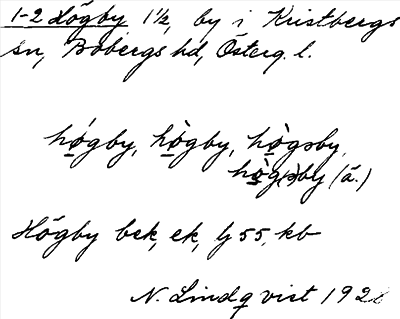 1-2 Högby 1½, by i Kristbergs
sn, Bobergs hd, Österg. l.
hǫ́gby, hǫ̀gby, hǫ̀gəby,
hǫ̀g(ə)by (ä.)
Högby bek, ek, lj 55, kb
N. Lindqvist 192